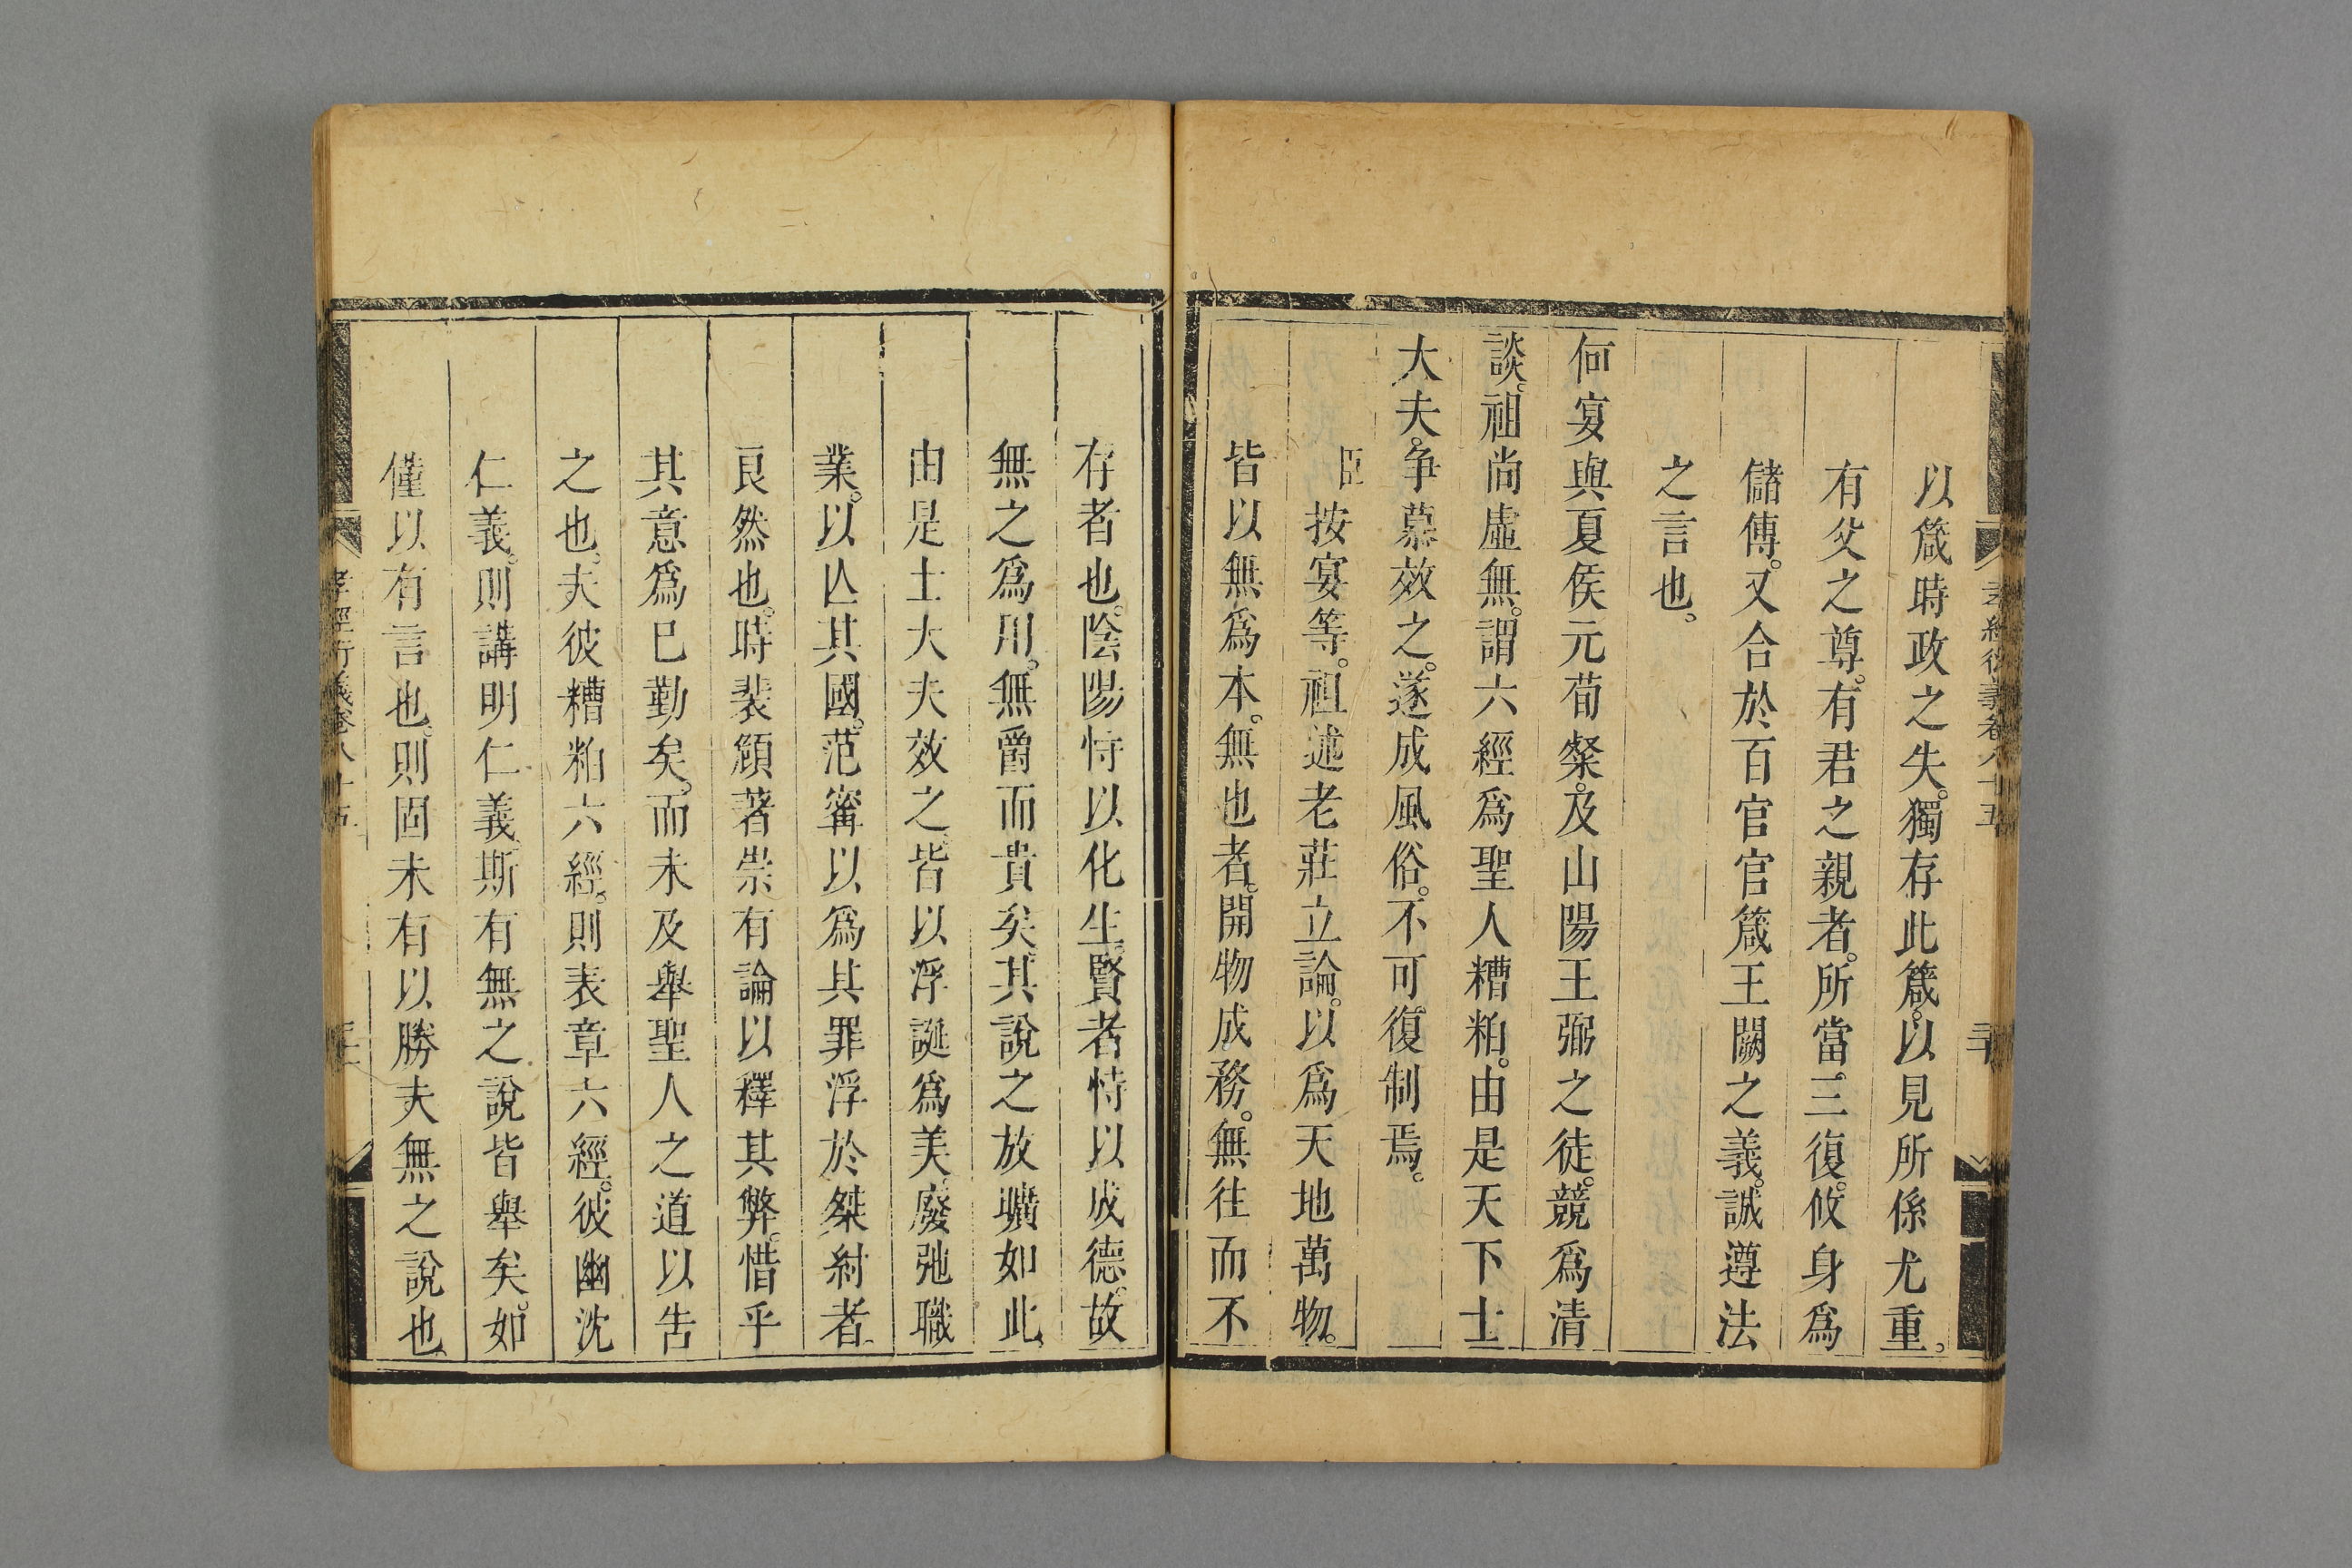 以箴時政之失。獨存此箴。以見所係尤重。
有父之尊。有君之親者。所當三復。攸身爲
儲傳。又合於百官官箴王闕之義。誠遵法
之言也。
何宴與夏侯元荀粲。及山陽王弼之徒。競爲清
談。祖尚虛無。謂六經爲聖人糟粕。由是天下士
大夫。争慕效之。遂成風俗。不可復制焉。
臣按宴等。祖述老莊立論。以爲天地萬物。
皆以無爲本。無也者。開物成務。無往而不
存者也。陰陽恃以化生。賢者恃以成德。故
無之爲用。無爵而貴矣。其說之放壙如此。
由是士大夫效之。皆以浮誕爲美。廢弛職
業。以亾其國。范甯以爲其罪浮於桀紂者。
良然也。時裴頠著崇有論以釋其弊。惜乎
其意爲已勤矣。而未及舉聖人之道以告
之也。夫彼糟粕六經。則表章六經。彼幽沈
仁義。則講明仁義。斯有無之說皆舉矣。如
僅以有言也。則固未有以勝夫無之說也。
孝經衍義卷八十五